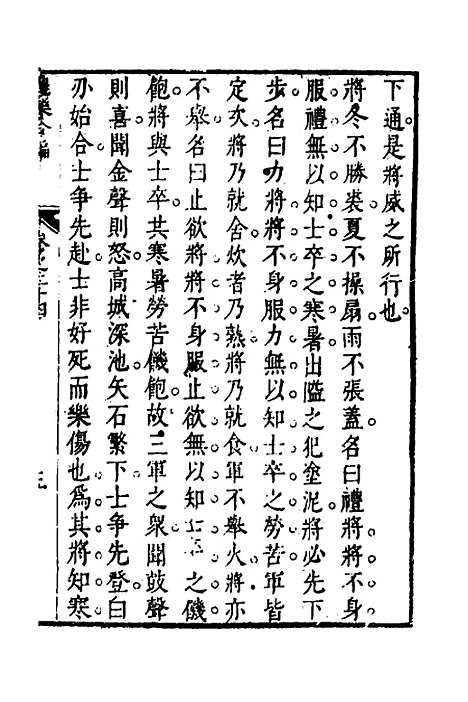 下通是將威之所行也
將冬不勝裘夏不操扇雨不張蓋名曰禮將將不身
服禮無以知士卒之寒暑出隘之犯塗泥將必先下
步名曰力將將不身服力無以知士卒之勞苦軍皆
定次將乃就舍炊者乃熟將乃就食軍不舉火將亦
不舉名曰止欲將將不身服止欲無以知士卒之饑
飽將與士卒共寒暑勞苦饑飽故三軍之衆聞鼓聲
則喜聞金聲則怒高城深池矢石繁下士争先登白
刃始合士争先赴士非好死而樂傷也為其將知寒